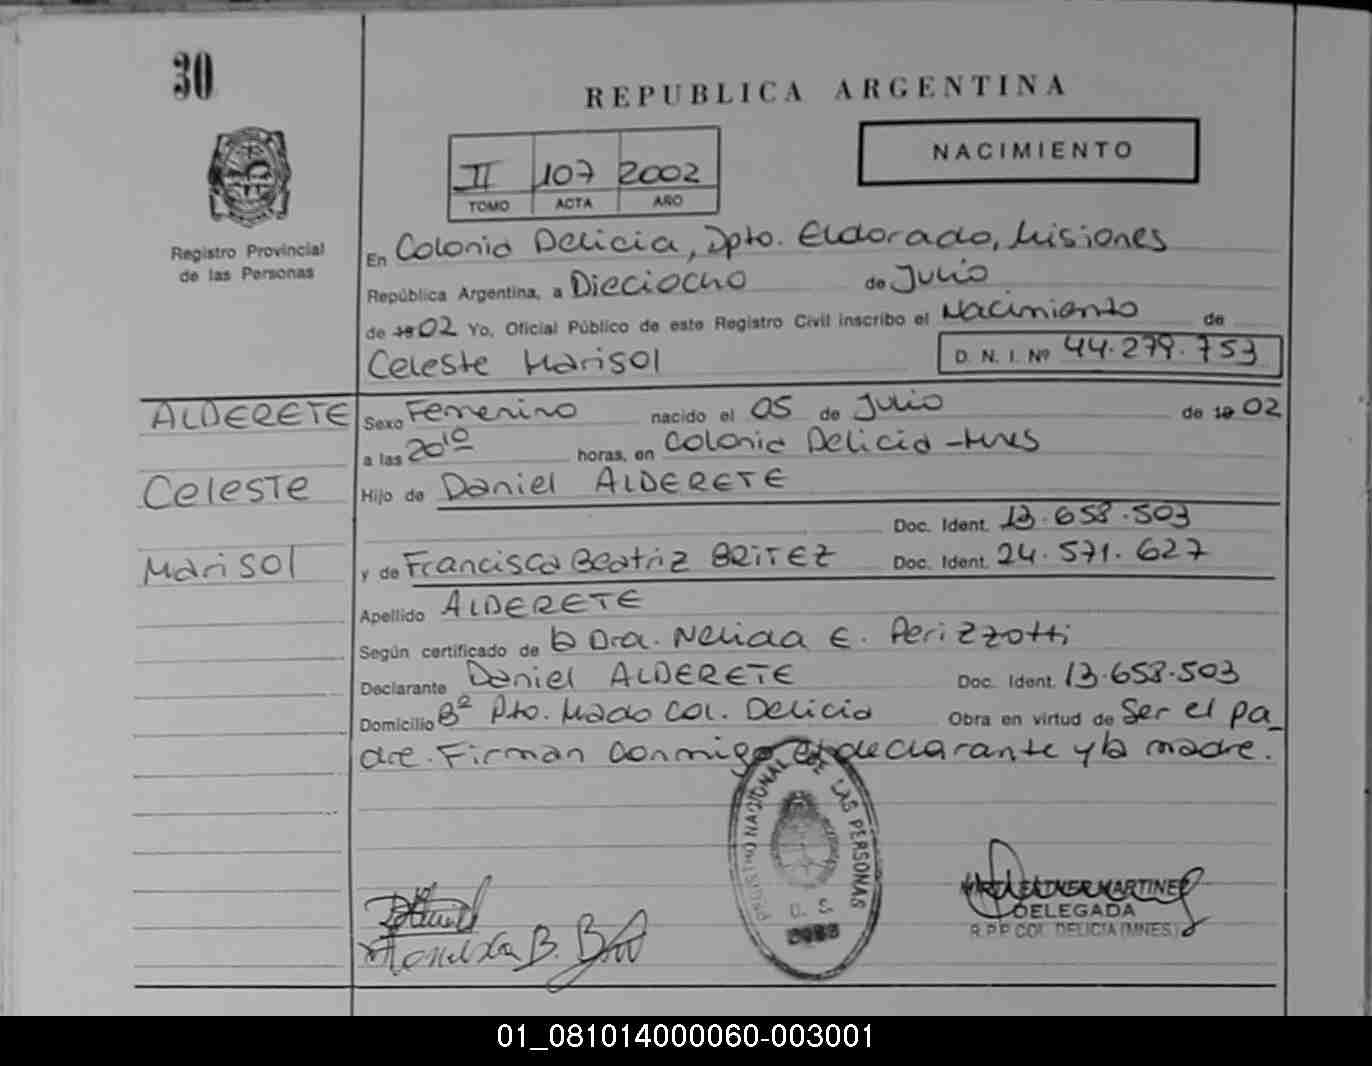 30
REPUBLICA ARGENTINA
II 107 2002
TOMO ACTA AÑO
NACIMIENTO
Registro Provincial
de las Personas
En Colonia Delicia, Dpto. Eldorado, Misiones
República Argentina, a Dieciocho de Julio
de 19 02 Yo, Oficial Público de este Registro Civil inscribo el Nacimiento de
Celeste Marisol D. N. I. Nº 44.279.753
ALDERETE Sexo Femenino nacido el 05 de Julio de 19 02
a las 20 10 horas, en Colonia Delicia - Mnes
Celeste Hijo de Daniel ALDERETE
Doc. Ident. 13.658.503
Marisol y de Francisca Beatriz BRITEZ Doc. Ident. 24.571.627
Apellido ALDERETE
Según certificado de la Dra. Nelida E. Perizzotti
Declarante Daniel ALDERETE Doc. Ident. 13.658.503
Domicilio Bº Pto. Mado Col. Delicia Obra en virtud de Ser el pa_
dre. Firman conmigo el declarante y la madre.
REGISTRO NACIONAL DE LAS PERSONAS
O. S.
MARTINEZ
DELEGADA
R.P.P. COL. DELICIA (MNES.)
B.
01_081014000060-003001